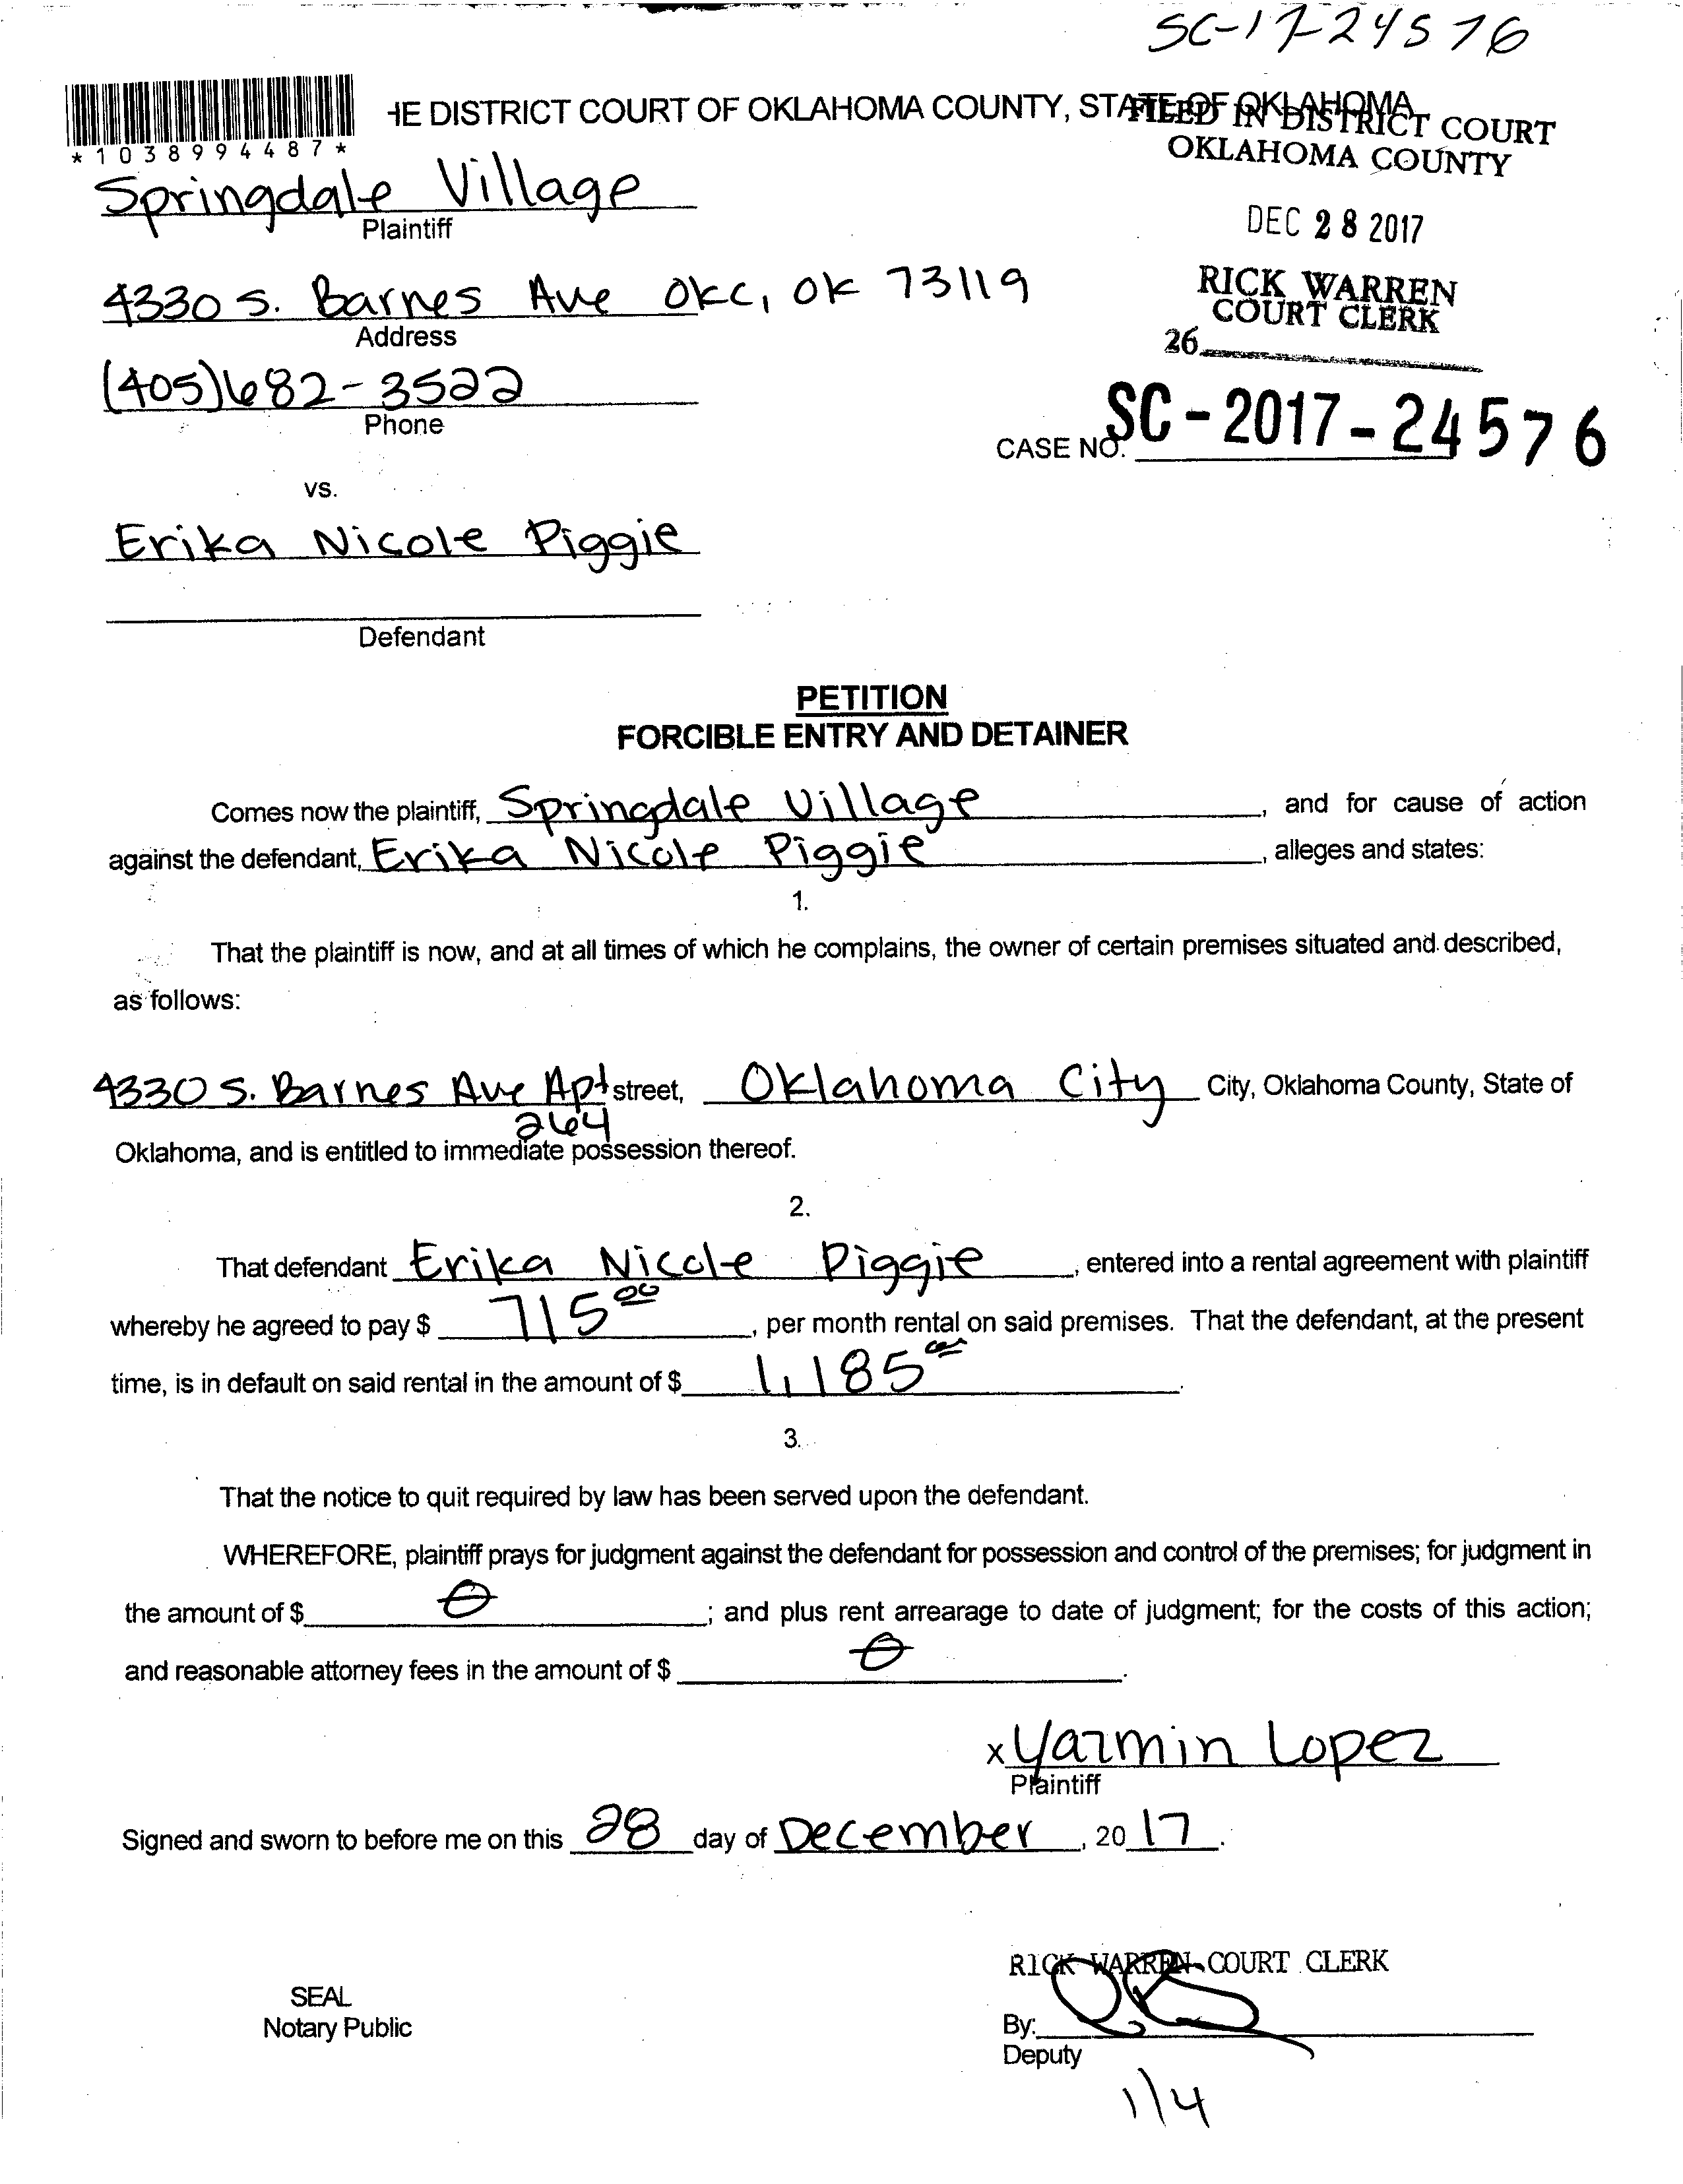 SC-17-24576
*1038994487*
HE DISTRICT COURT OF OKLAHOMA COUNTY, STATE OF OKLAHOMA
FILED IN DISTRICT COURT
OKLAHOMA COUNTY
Springdale Village
Plaintiff
DEC 28 2017
4330 S. Barnes Ave OKC, OK 73119
Address
RICK WARREN
COURT CLERK
26
(405)682-3522
Phone
CASE NO. SC-2017-24576
vs.
Erika Nicole Piggie
Defendant
PETITION
FORCIBLE ENTRY AND DETAINER
Comes now the plaintiff, Springdale Village, and for cause of action
against the defendant, Erika Nicole Piggie, alleges and states:
1.
That the plaintiff is now, and at all times of which he complains, the owner of certain premises situated and described,
as follows:
4330 S. Barnes Ave Apt street, Oklahoma City City, Oklahoma County, State of
264
Oklahoma, and is entitled to immediate possession thereof.
2.
That defendant Erika Nicole Piggie, entered into a rental agreement with plaintiff
whereby he agreed to pay $ 715 00, per month rental on said premises. That the defendant, at the present
time, is in default on said rental in the amount of $ 1,185 00.
3.
That the notice to quit required by law has been served upon the defendant.
WHEREFORE, plaintiff prays for judgment against the defendant for possession and control of the premises; for judgment in
the amount of $ 0; and plus rent arrearage to date of judgment; for the costs of this action;
and reasonable attorney fees in the amount of $ 0.
x Yazmin Lopez
Plaintiff
Signed and sworn to before me on this 28 day of December, 2017.
RICK WARREN COURT CLERK
SEAL
Notary Public
By:
Deputy
1/4